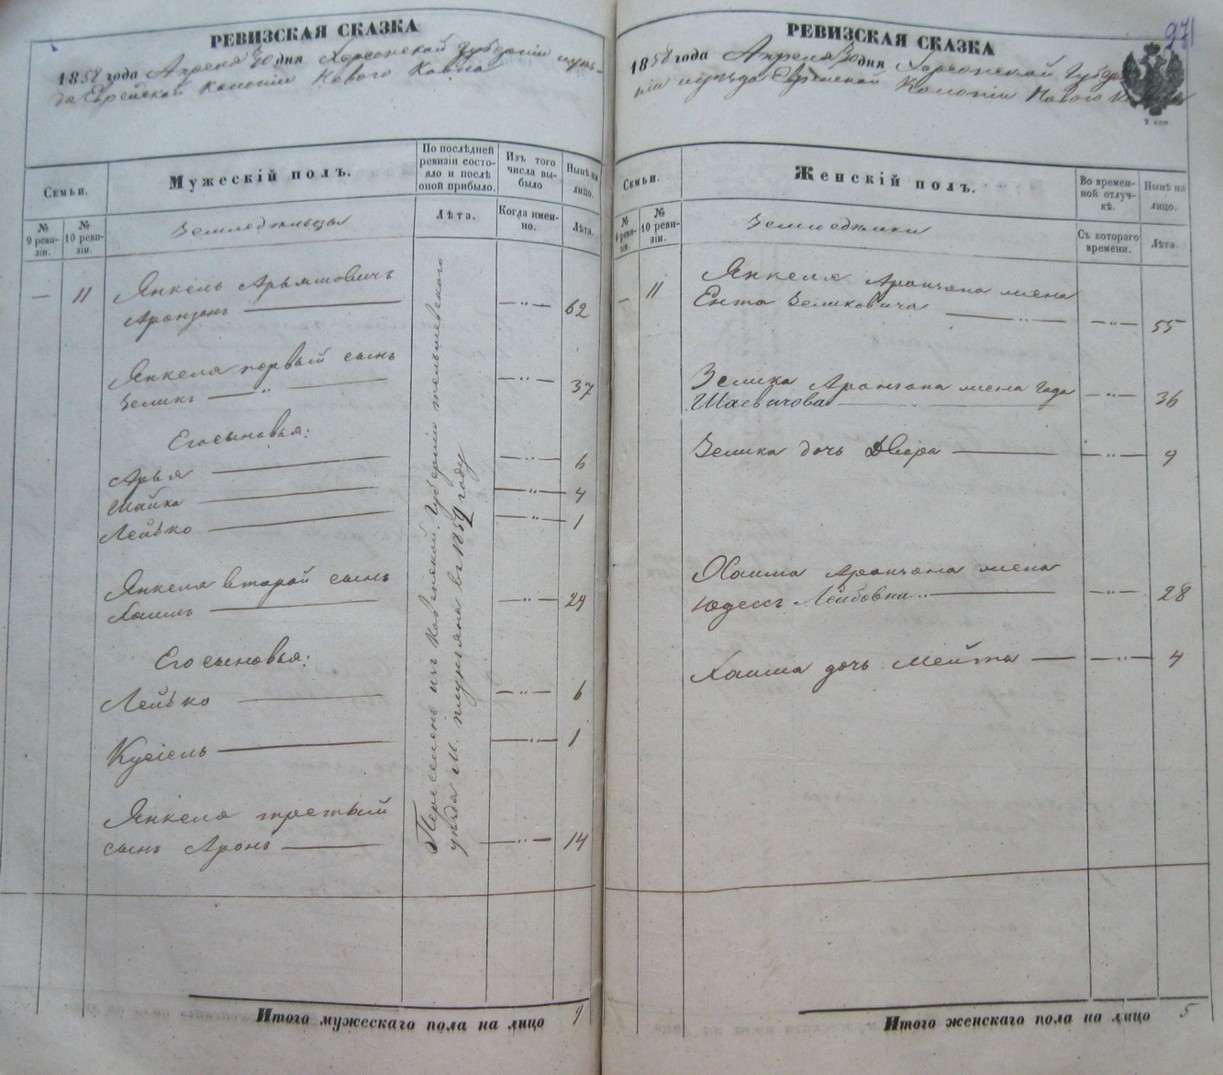 РЕВИЗСКАЯ СКАЗКА
1858 года Апреля 30 дня Херсонской Губернии
Еврейской Колонии Нового Ковна
Семьи.
Мужескій полъ.
По послѣдней ревизіи состояло и послѣ оной прибыло.
Изъ того числа выбыло
Нынѣ на лицо.
№ 9 ревизіи.
№ 10 ревизіи.
Земледѣльцы
Лѣта.
Когда именно.
Лѣта.
— 11 Янкель
Аронзонъ — „ — 62
Янкеля первый сынъ
Зеликъ — „ — 37
Его сыновья:
Арья — „ — 6
Шайка — „ — 4
Лейбко — „ — 1
Янкеля второй сынъ
Хаимъ — „ — 29
Его сыновья:
Лейбко — „ — 6
Кусіель — „ — 1
Янкеля третый
сынъ Аронъ — „ — 14
Переселенъ изъ Ковенской Губерніи тельшевского
уѣзда М. плунгянъ въ 1859 году
Итого мужескаго пола на лицо 9
271
РЕВИЗСКАЯ СКАЗКА
1858 года Апреля 30 дня Херсонской Губер
ніи Еврейской Колоніи Нового
7. коп.
Семьи.
Женскій полъ.
Во временной отлучкѣ.
Нынѣ на лицо.
№ 9 ревизіи.
№ 10 ревизіи.
Съ котораго времени.
Лѣта.
— 11 Янкеля Аронзона жена
Ента Зеликовича — „ — 55
Зелика Аронзона жена Года
Шаевичова — „ — 36
Зелика дочь Двора — „ — 9
Хаима Аронзона жена
Юдесъ Лейбовна — „ — 28
Хаима дочь Мейта — „ — 4
Итого женскаго пола на лицо 5